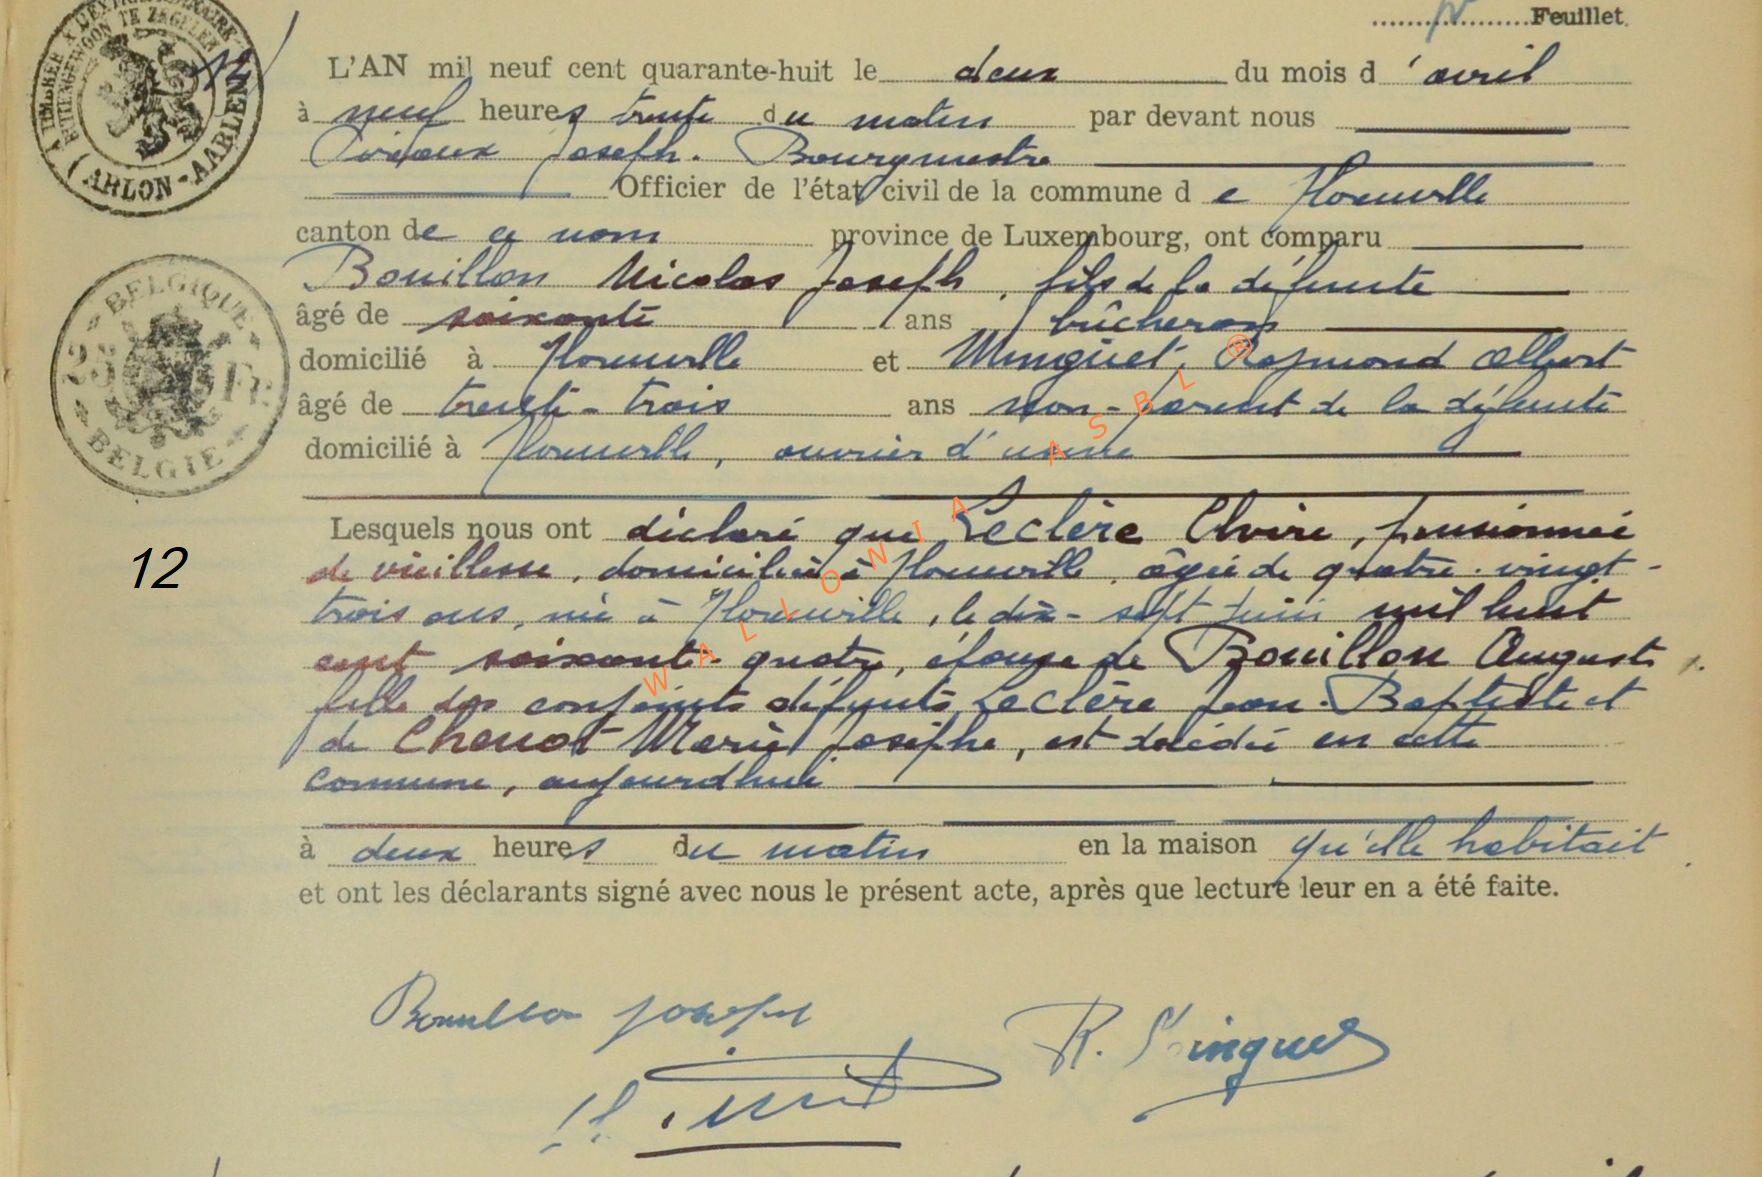 Feuillet.
A TIMBRER À L'EXTRAORDINAIRE
BUITENGEWOON TE ZEGELEN
ARLON - AARLEN
L'AN mil neuf cent quarante-huit le deux du mois d'avril
à neuf heures trente du matin par devant nous
Joseph. Bourgmestre
Officier de l'état civil de la commune de Florenville
canton de ce nom province de Luxembourg, ont comparu
Bouillon Nicolas Joseph, fils de la défunte
âgé de soixante ans bûcheron
BELGIQUE
2 Fr
BELGIE
domicilié à Florenville et Minguet, Raymond Albert
âgé de trente-trois ans non-parent de la défunte
domicilié à Florenville, ouvrier d'usine
Lesquels nous ont déclaré que Leclère Elvire, pensionnée
12
de vieillesse, domiciliée à Florenville, âgée de quatre-vingt-
trois ans, née à Florenville, le dix-sept juin mil huit
cent soixante-quatre, épouse de Bouillon Auguste
fille des conjoints défunts Leclère Jean-Baptiste et
de Chenot Marie Josèphe, est décédée en cette
commune, aujourd'hui
à deux heures du matin en la maison qu'elle habitait
et ont les déclarants signé avec nous le présent acte, après que lecture leur en a été faite.
Bouillon Joseph
R. Minguet
WALLONIA ASBL ®